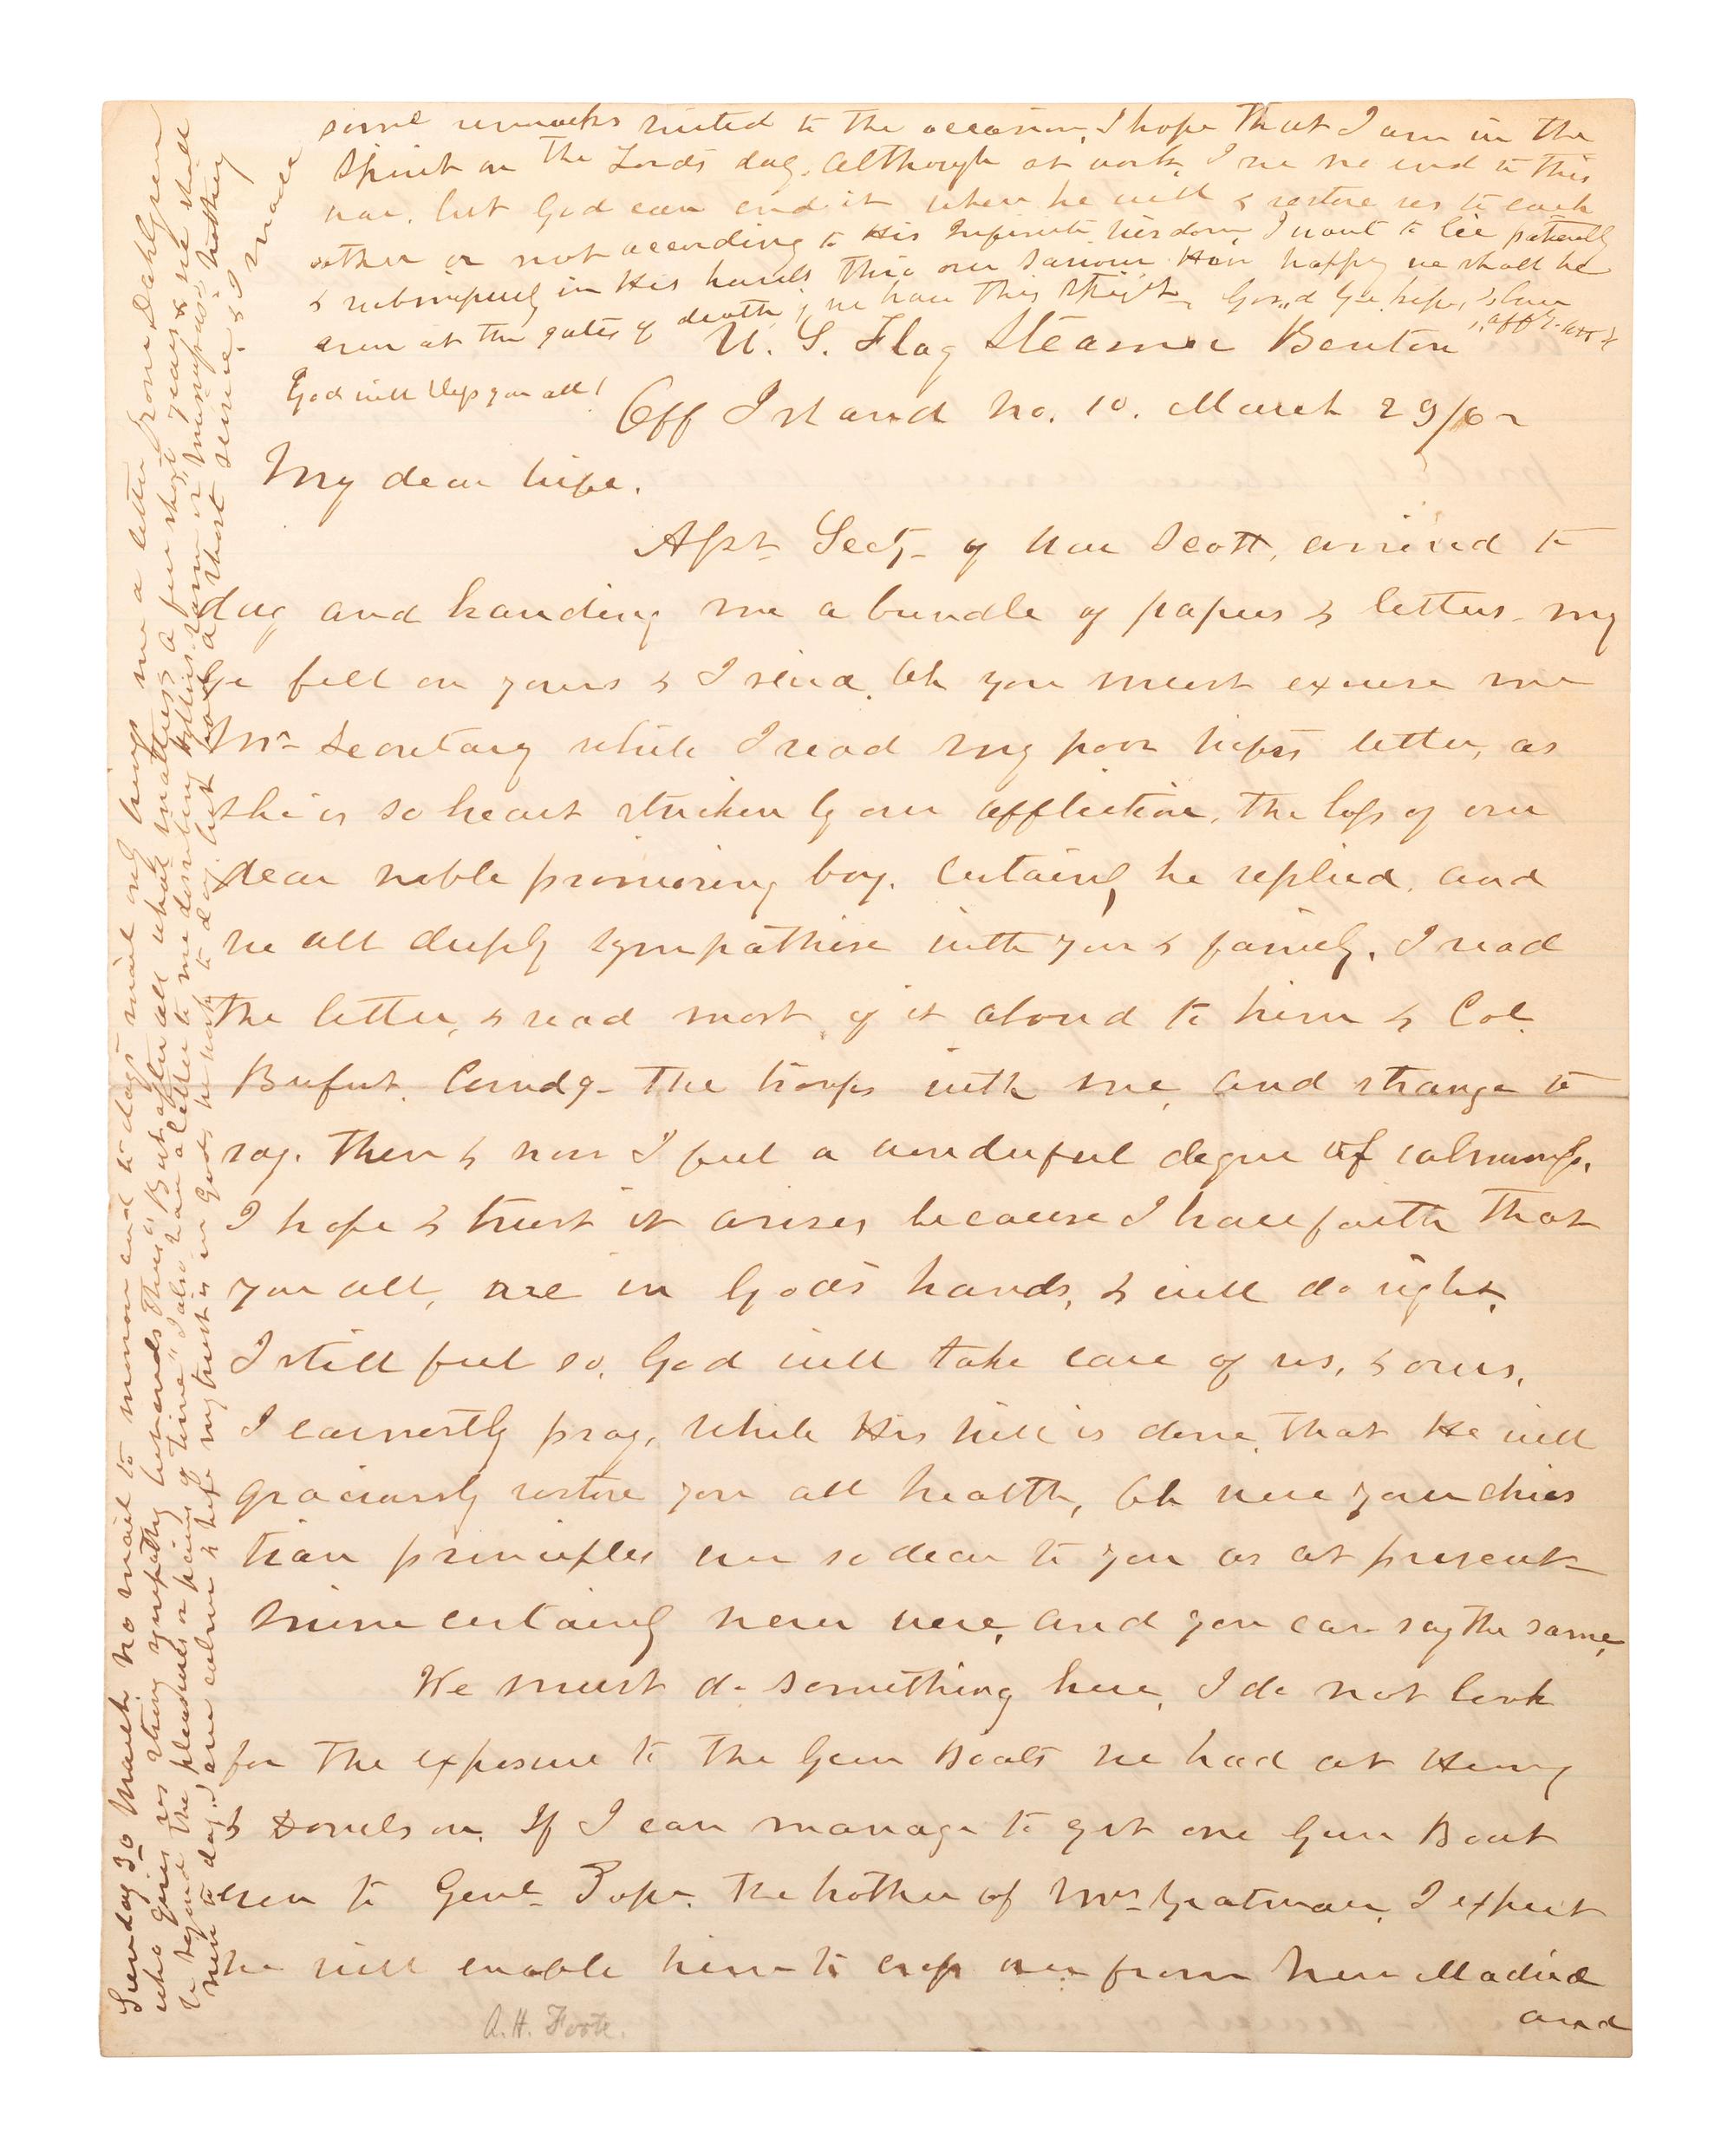 U. S. Flag Steamer Benton
Off Island No. 10. March 29/62
My dear wife.
Asst Secty of War Scott, arrived to
day and handing me a bundle of papers & letters. my
eye fell on yours & I said, Oh you must excuse me
Mr Secretary while I read my poor wife's letter, as
she is so heart stricken by our affliction, the loss of our
dear noble promising boy. Certainly he replied, and
we all deeply sympathise with you & family. I read
the letter, & read most of it aloud to him & Col.
Buford. Comdg the troops with me, and strange to
say. then & now I feel a wonderful degree of calmness.
I hope & trust it arises because I have faith that
you all, are in God's hands, & will do right.
I still feel so. God will take care of us, & ours,
I earnestly pray, while His will is done, that He will
graciously restore you all health, Oh were your chris
tian principles ever so dear to you as at present
mine certainly never were, and you can say the same,
We must do something here, I do not look
for the exposure to the Gun Boats we had at Henry
& Donelson. If I can manage to get one Gun Boat
even to Genl Pope. the brother of Mrs Yeatman, I expect
he will enable him to cross over from New Madrid
and
Sunday 30 March no mail to morrow and to days mail only brings me a letter from Dahlgren
who gives us strong sympathy he sends this is But after all what matters a few short years & we shall
be beyond the pleasures or pains of time" I also have a letter to me describing Willie's form or "manifest" nothing
new to day. I am calm & hope my trust is in God. We work to day, but had a short service, & I made
some remarks suited to the occasion, I hope that I am in the
Spirit on the Lord's day, although at work, I see no end to this
war. but God can end it when he will & restore us to each
other or not according to His Infinite wisdom, I want to lie patiently
& submissively in His hands thro our Saviour How happy we shall be
even at the gates of death, if we have this spirit. Good bye, hope, & love
affy.
God will bless you all!
A. H. Foote.